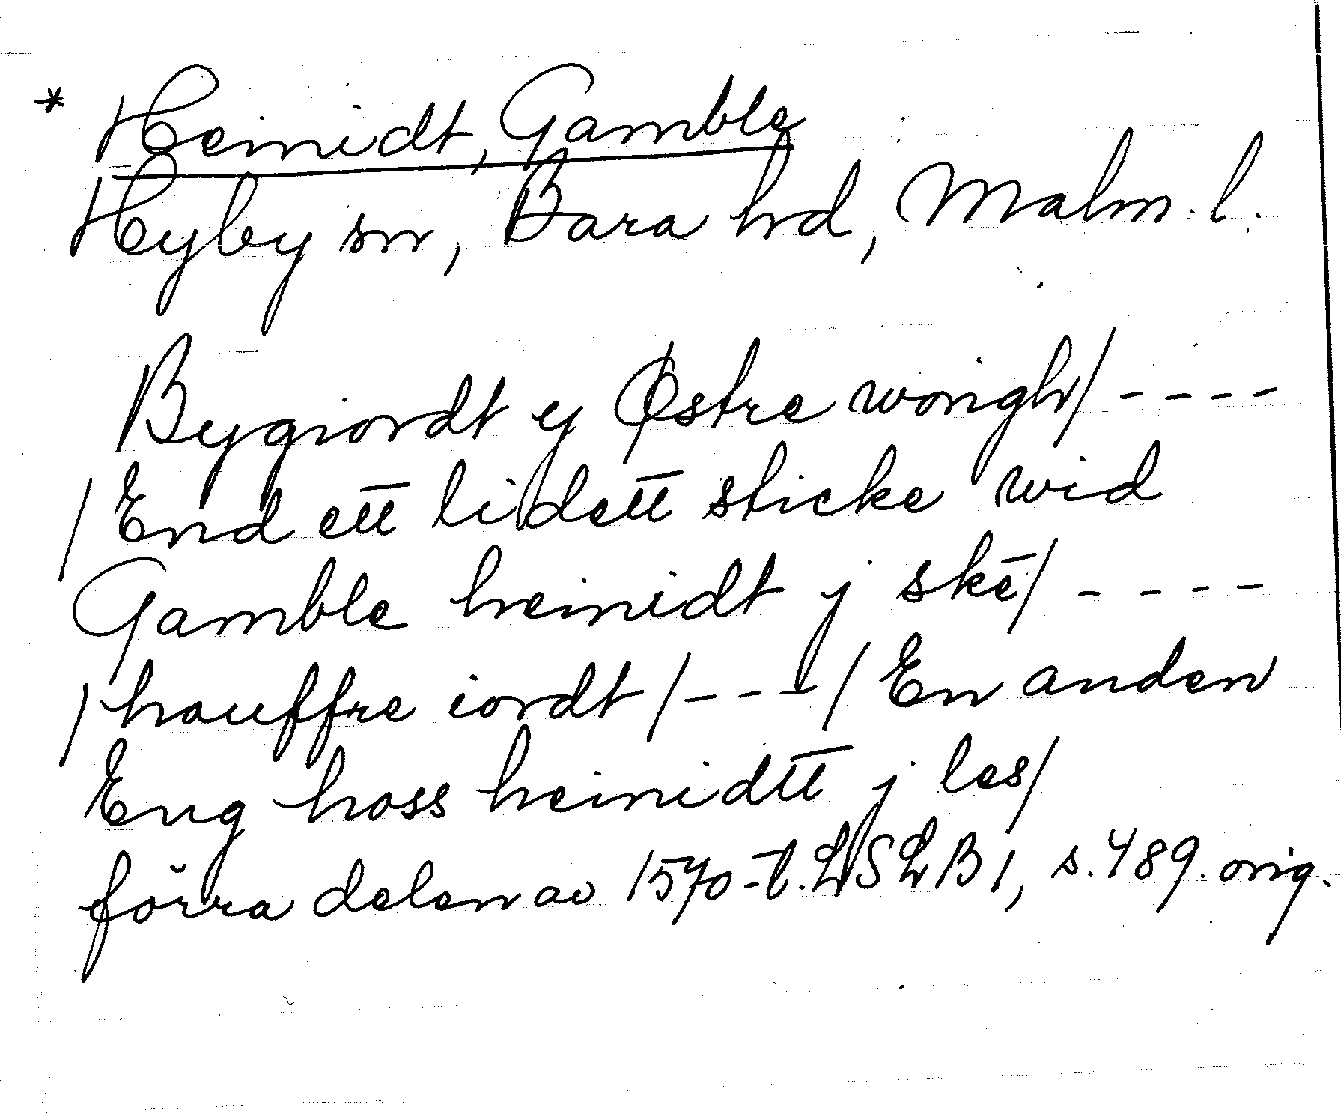 * Heinidt, Gamble
Hyby sn, Bara hd, Malm. l.
Bygiordt ej Østre wongh/ - - - -
/ End ett lidett sticke wid
Gamble heinidt j skē/ - - - -
/ houffre iordt / - - - / En anden
Eng hoss heinidtt j les/
förra delen av 1570-t. LSLB 1, s. 489. orig.